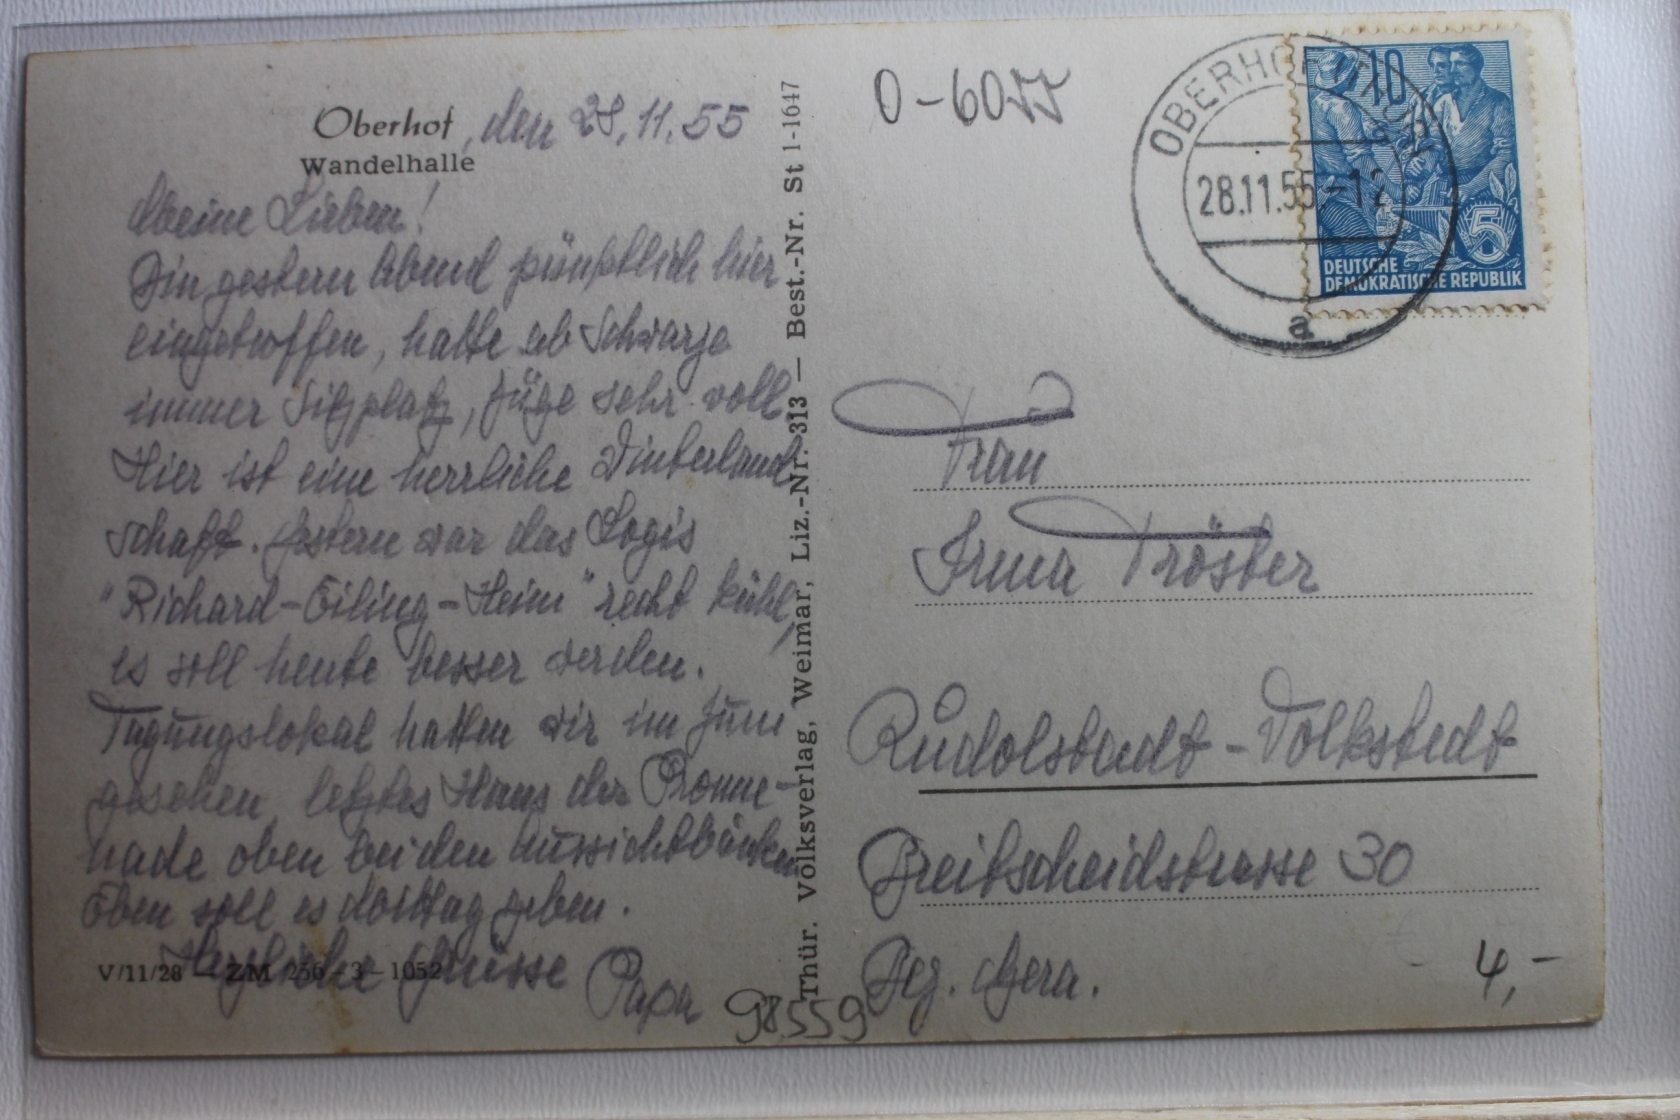 Oberhof, den 28.11.55
Wandelhalle
Meine Lieben!
Bin gestern Abend pünktlich hier
eingetroffen, hatte ab Schwarza
immer Sitzplatz, Züge sehr voll.
Hier ist eine herrliche Winterland
schaft. Gestern war das Logis
"Richard-Eiling-Heim" recht kühl,
es soll heute besser werden.
Tagungslokal hatten wir im Juni
gesehen, letztes Haus der Prome-
nade oben bei den Aussichtbänken
Eben soll es Mittag geben.
Herzliche Grüsse
Papa
V/11/28 - ZM 256-3-1052
Thür. Volksverlag, Weimar, Liz.-Nr. 313 — Best.-Nr. St 1-1647
98559
O-6055
OBERHOF (THÜR)
28.11.55.-12
a
10
5
DEUTSCHE
DEMOKRATISCHE REPUBLIK
Frau
Irma Tröster
Rudolstadt-Volkstedt
Breitscheidstrasse 30
Bez. Gera.
4,-